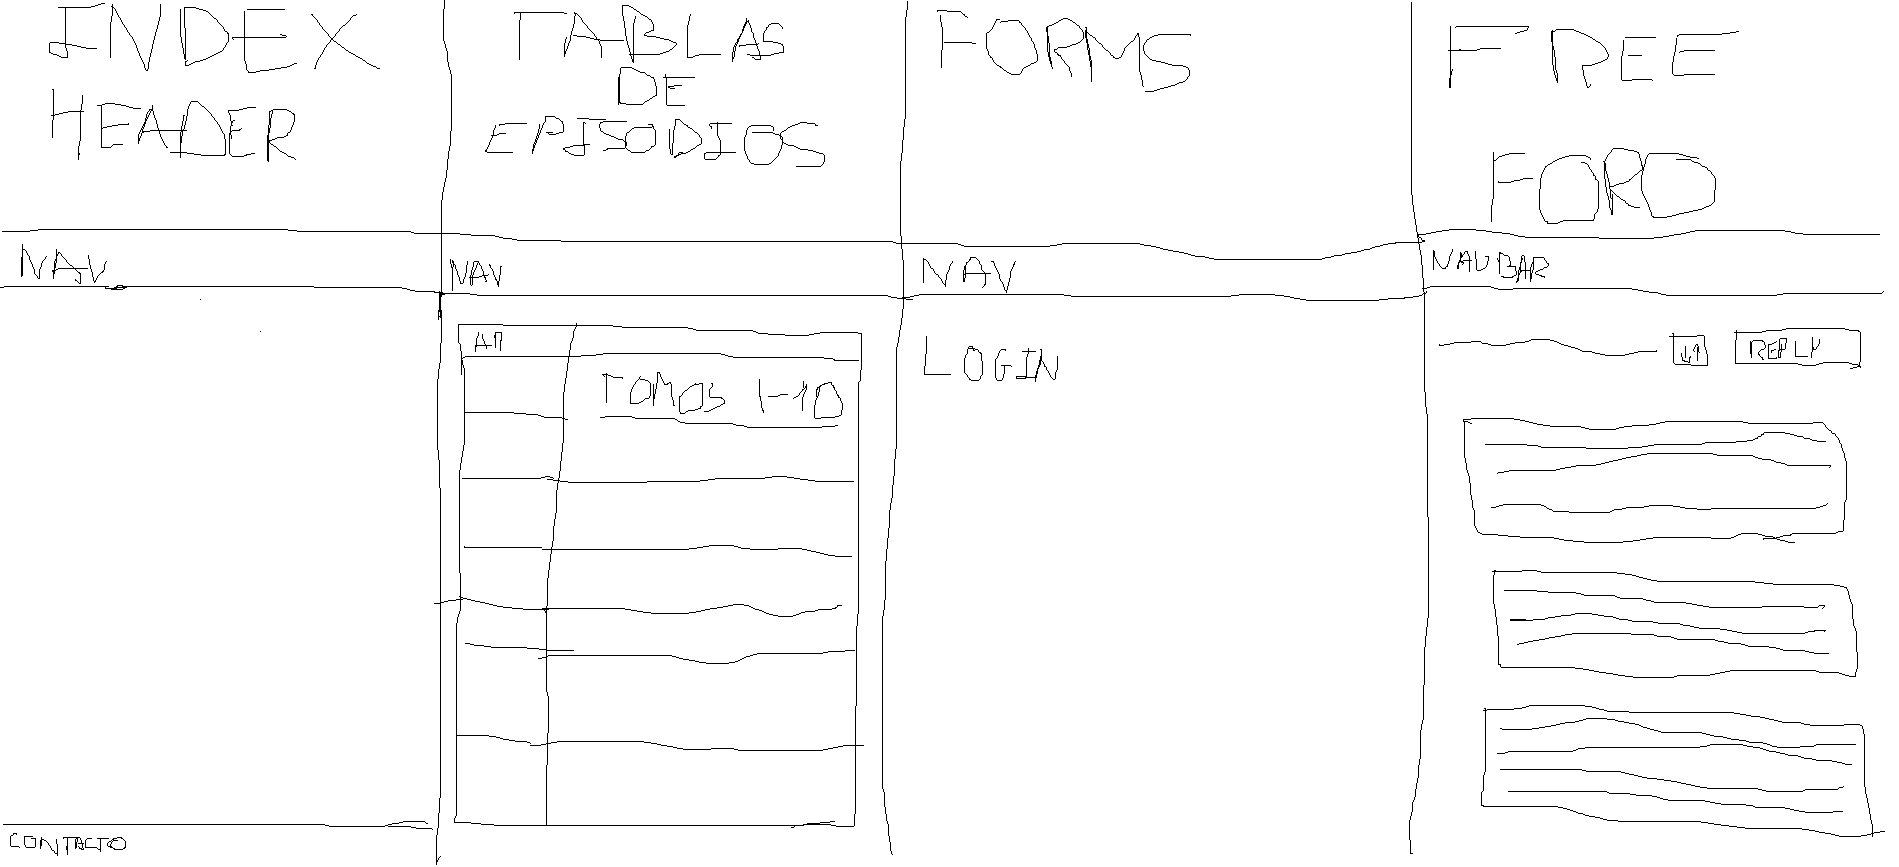 INDEX
HEADER
NAV
CONTACTO
TABLAS
DE
EPISODIOS
NAV
TOMOS 1-10
FORMS
NAV
LOGIN
FREE
FORD
NAVBAR
↓↑
REPLY